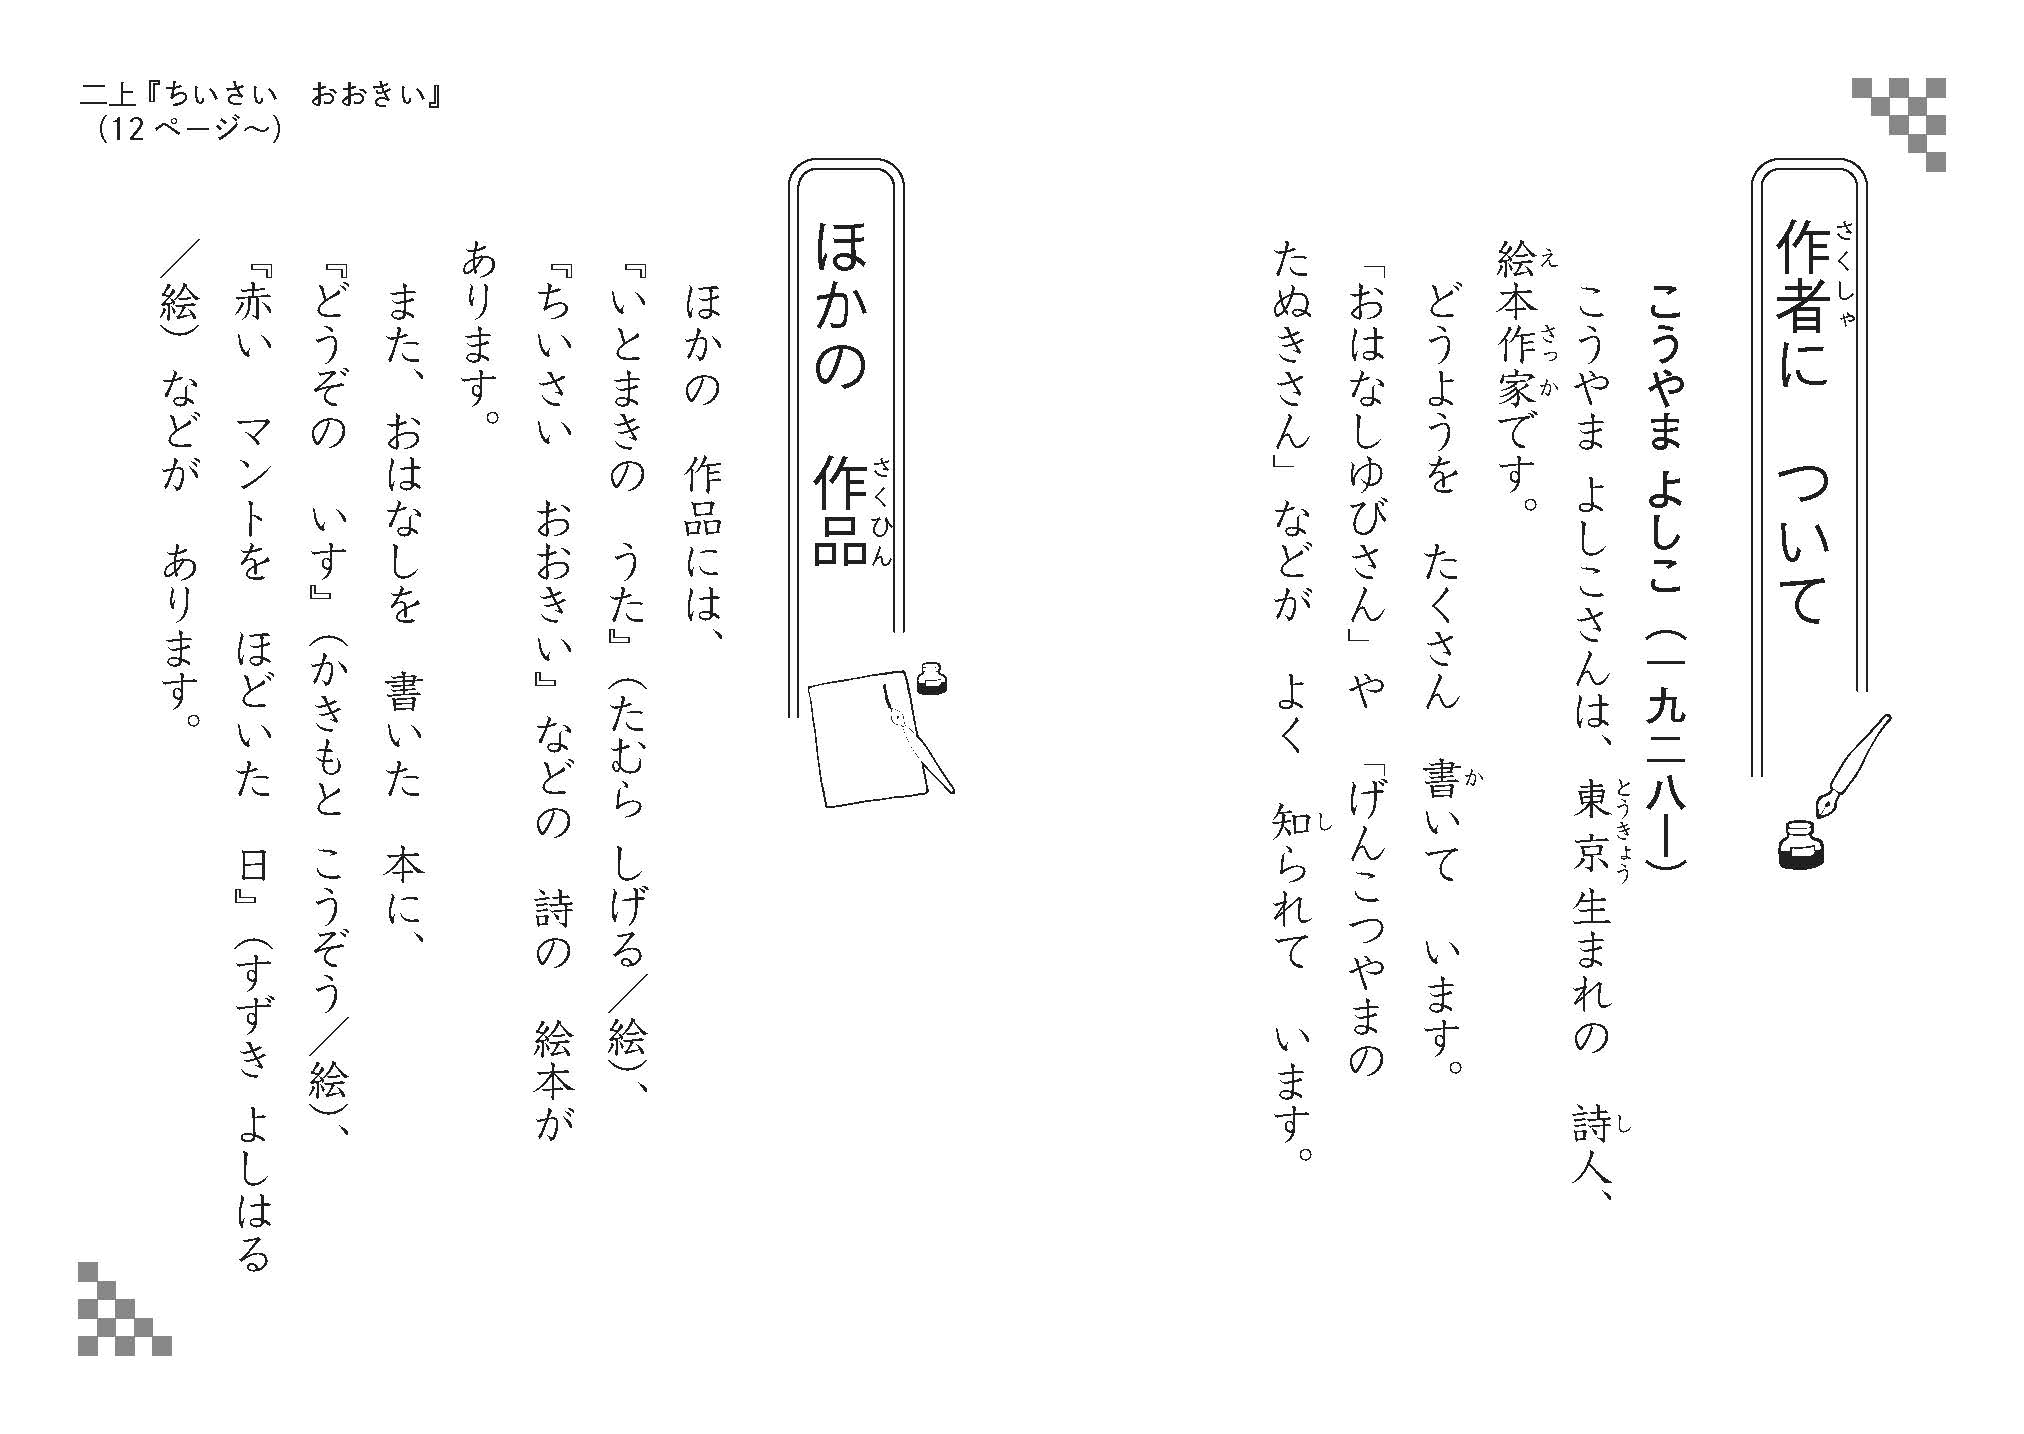 二上『ちいさい　おおきい』
（12ページ～）
作者に　ついて
さくしゃ
こうやま よしこ（一九二八―）
こうやま よしこさんは、東京生まれの　詩人、
とうきょう
し
絵本作家です。
え
さっか
どうようを　たくさん　書いて　います。
か
「おはなしゆびさん」や　「げんこつやまの
たぬきさん」などが　よく　知られて　います。
し
ほかの　作品
さくひん
ほかの　作品には、
『いとまきの　うた』（たむら しげる／絵）、
『ちいさい　おおきい』などの　詩の　絵本が
あります。
また、おはなしを　書いた　本に、
『どうぞの　いす』（かきもと こうぞう／絵）、
『赤い　マントを　ほどいた　日』（すずき よしはる
／絵）などが　あります。